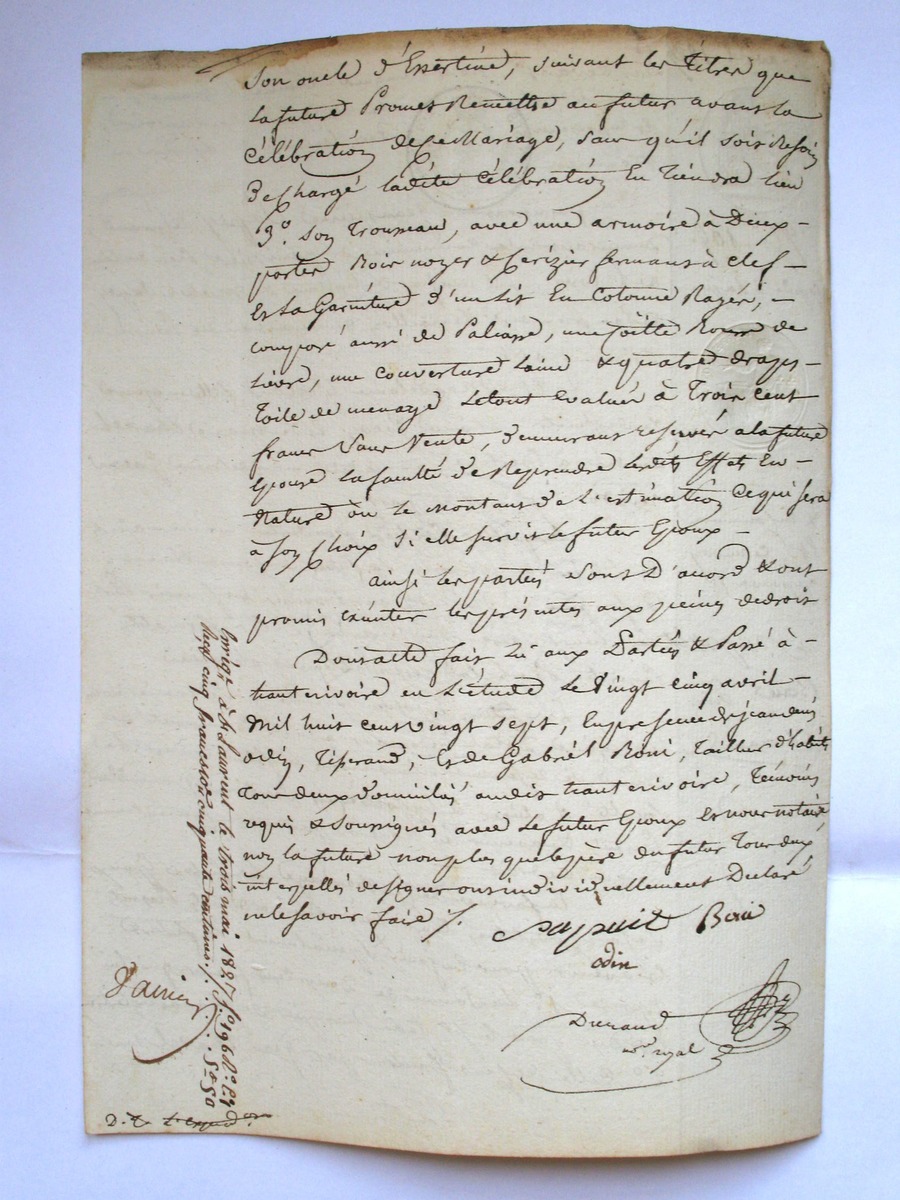 son oncle d'Essertine, suivant les titres que
la future Promet Remettre au futur avant la
célébration de ce Mariage, sans qu'il soit Besoin
de charge ladite célébration En tiendra lieu
3.º son trousseau, avec une armoire à Deux
portes Bois noyer & cerizier fermant à clef
et la Garniture d'un lit En Cotonne Rayée,
composé aussi de Paliasse, une Rousse de
Lièvre, une couverture Laine & quatre draps
Toile de menage Le tout Evalué à Trois cent
francs sans Vente, demeurant reservé a la future
Epouse la faculté de Reprendre lesdits Effets En
Nature ou le montant de L'estimation ce qui sera
à son choix si elle survit le futur Epoux
ainsi les parties sont D'accord & ont
promis exécuter les présentes aux peines de droit
Dont acte fait Lu aux Parties & Passé à
hauterivoire en L'étude Le Vingt cinq avril
Mil huit cent vingt sept, En presence de jean denis
odin, Tisserand, Et de Gabriël Boni, Tailleur d'habits
Tous deux Domiciliés audit hauterivoire, Témoins
requis & soussignés avec Le futur Epoux et nous notaire
non la future non plus que le père du futur Tous deux
interpellés de signer ont individuellement Declaré
ne le savoir faire ./.
Boni
odin
Durand
no.re royal
Enrégt. à St Laurent le trois mai 1827 f.º 196
Reçu cinq francs cinquante centimes ./. 5.50
D. &